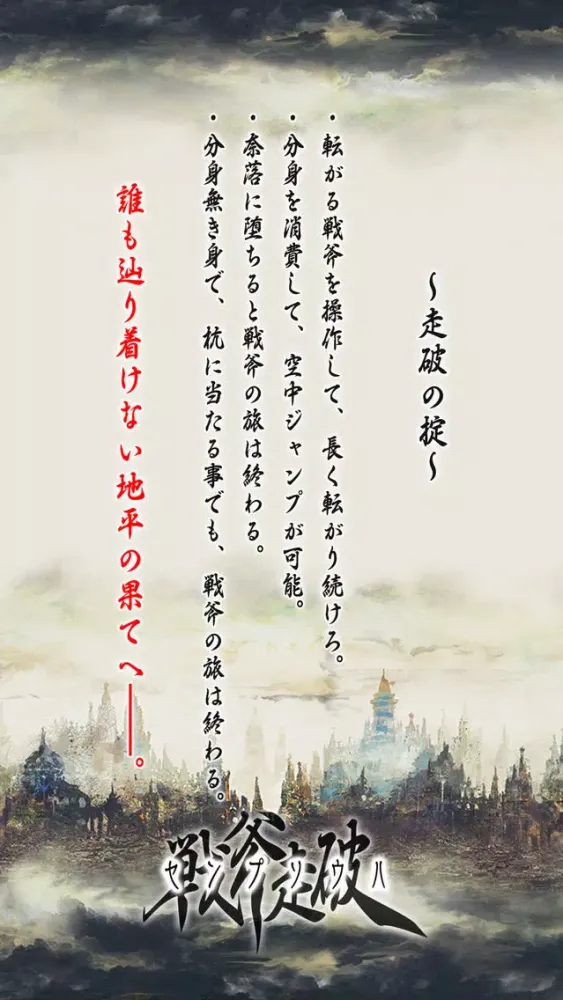 ～走破の掟～
・転がる戦斧を操作して、長く転がり続けろ。
・分身を消費して、空中ジャンプが可能。
・奈落に堕ちると戦斧の旅は終わる。
・分身無き身で、杭に当たる事でも、戦斧の旅は終わる。
誰も辿り着けない地平の果てへ――。
戦斧走破
センプソウハ